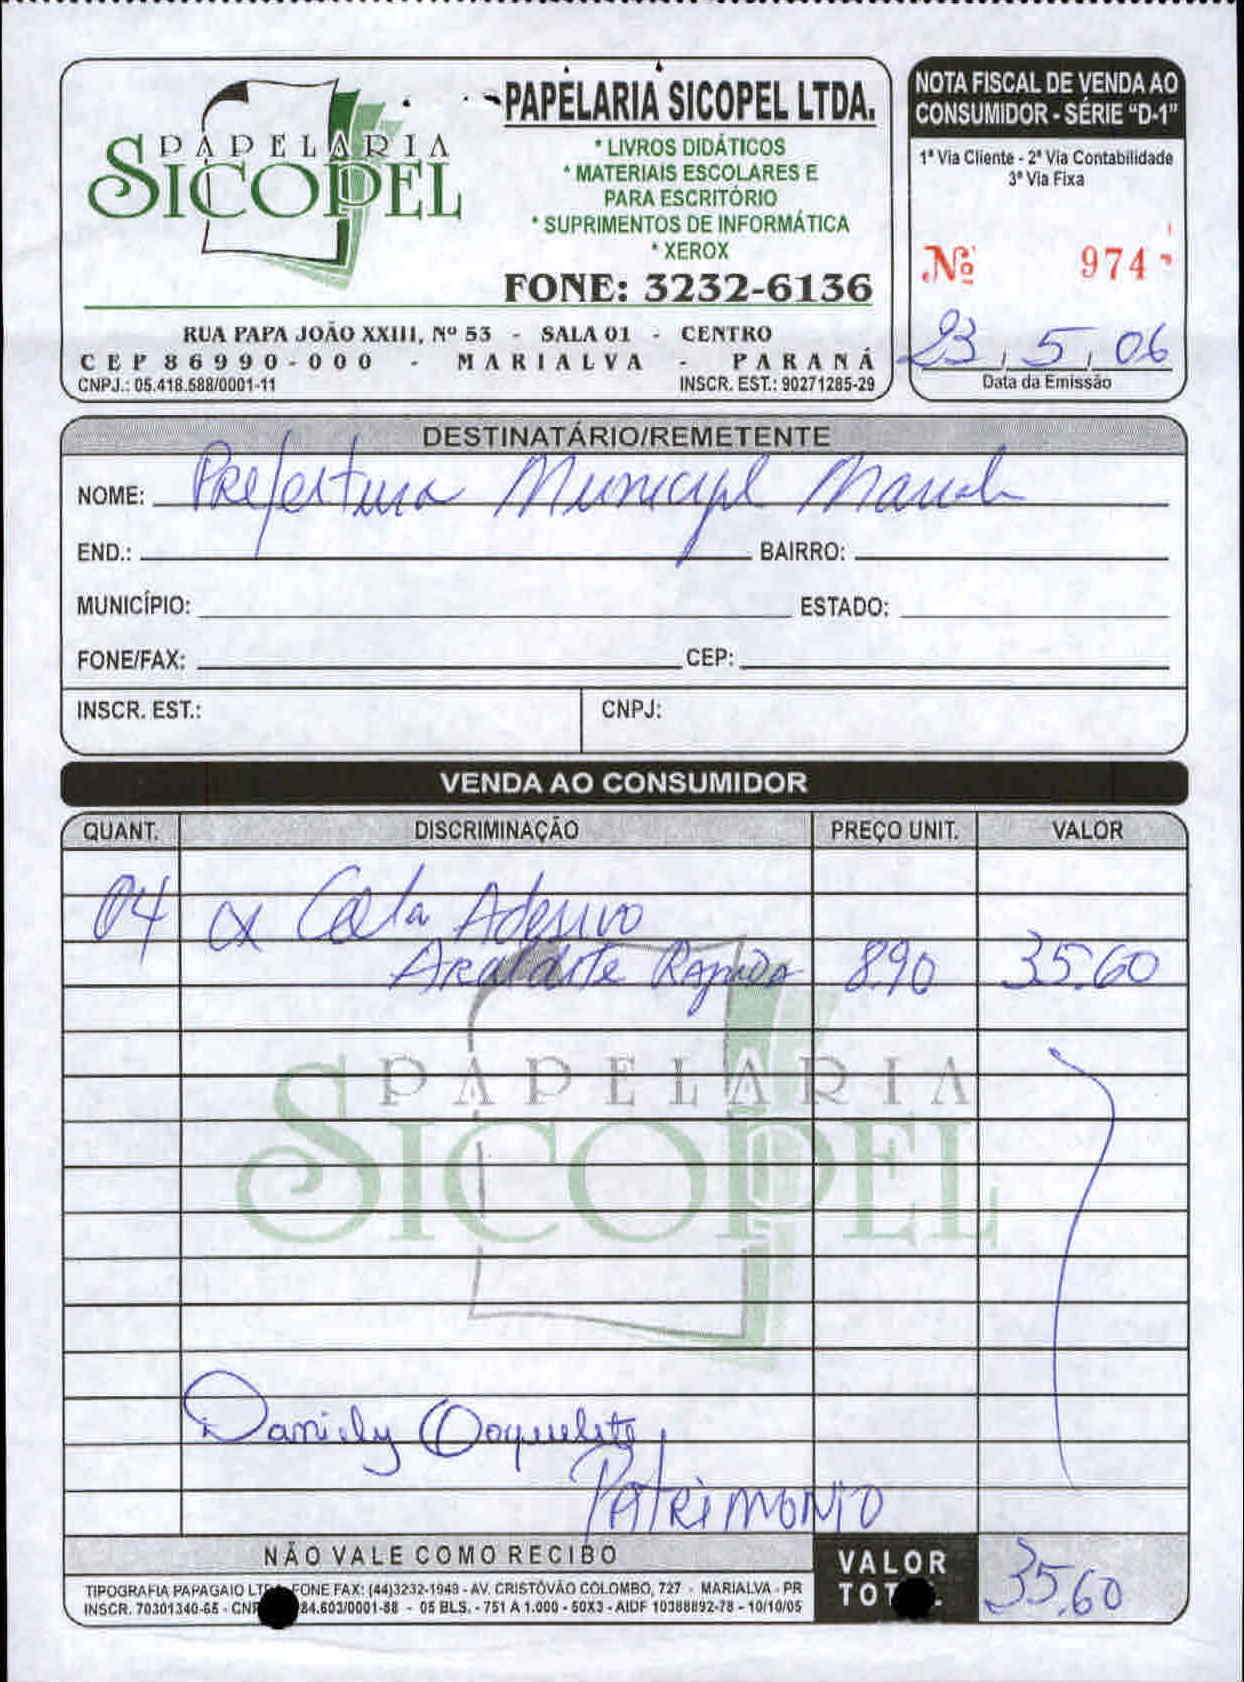 PAPELARIA
SICOPEL
PAPELARIA SICOPEL LTDA.
* LIVROS DIDÁTICOS
* MATERIAIS ESCOLARES E
PARA ESCRITÓRIO
* SUPRIMENTOS DE INFORMÁTICA
* XEROX
FONE: 3232-6136
RUA PAPA JOÃO XXIII, Nº 53 - SALA 01 - CENTRO
CEP 86990-000 - MARIALVA - PARANÁ
CNPJ.: 05.418.588/0001-11 INSCR. EST.: 90271285-29
NOTA FISCAL DE VENDA AO
CONSUMIDOR - SÉRIE "D-1"
1ª Via Cliente - 2ª Via Contabilidade
3ª Via Fixa
Nº 974
23, 5, 06
Data da Emissão
DESTINATÁRIO/REMETENTE
NOME: Prefeitura Municipal
END.: BAIRRO:
MUNICÍPIO: ESTADO:
FONE/FAX: CEP:
INSCR. EST.: CNPJ:
VENDA AO CONSUMIDOR
QUANT. DISCRIMINAÇÃO PREÇO UNIT. VALOR
04 cx Adesivo
Araldite Rapida 8.90 35.60
PAPELARIA
SICOPEL
Daniely
PATRIMONIO
NÃO VALE COMO RECIBO
VALOR
TOT. 35,60
TIPOGRAFIA PAPAGAIO FONE FAX: (44)3232-1949 - AV. CRISTÓVÃO COLOMBO, 727 - MARIALVA - PR
INSCR. 70301340-65 - 84.603/0001-88 - 05 BLS. - 751 A 1.000 - 50X3 - AIDF 10388892-78 - 10/10/05